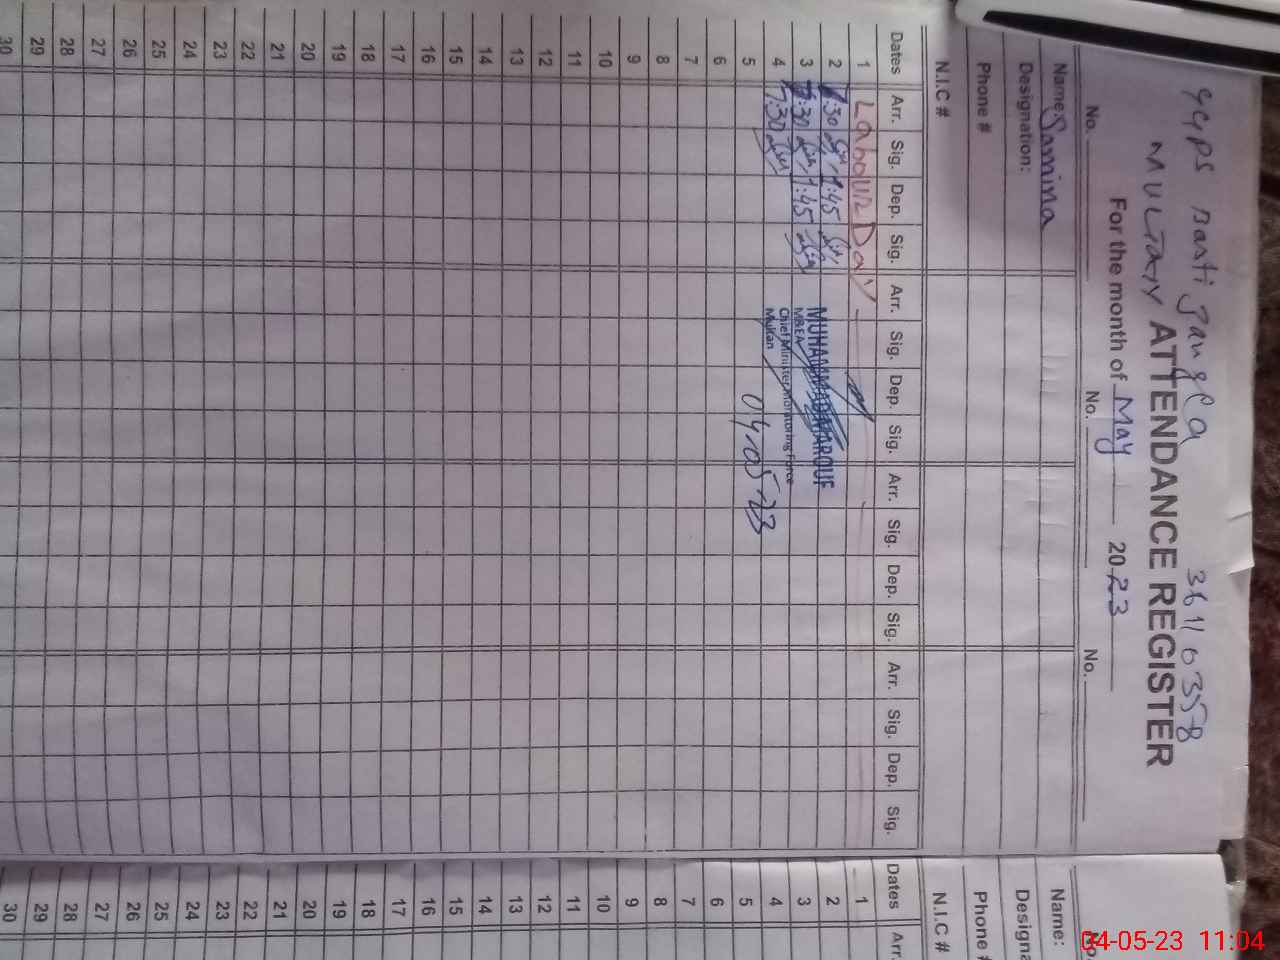 GGPS Basti Jangla 36110358
Multan ATTENDANCE REGISTER
For the month of May 2023
No. No. No.
Name: Samina
Designation:
Phone #
N.I.C #
Dates Arr. Sig. Dep. Sig. Arr. Sig. Dep. Sig. Arr. Sig. Dep. Sig. Arr. Sig. Dep. Sig.
1 Labour Day
2 7:30 1:45
3 7:30 1:45
4 7:30
MUHAMMAD MAROUF
M&EA
Chief Minister Monitoring Force
Multan
04-05-23
5
6
7
8
9
10
11
12
13
14
15
16
17
18
19
20
21
22
23
24
25
26
27
28
29
30
Name:
Designa
Phone #
N.I.C #
Dates Arr.
1
2
3
4
5
6
7
8
9
10
11
12
13
14
15
16
17
18
19
20
21
22
23
24
25
26
27
28
29
30
04-05-23 11:04